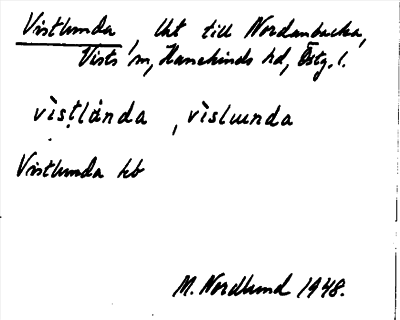 Vistlunda, lht till Nordanbacka,
Vists sn, Hanekinds hd, Östg. l.
vìstlùnda, vìsluunda
Vistlunda hb
M. Nordlund 1948.